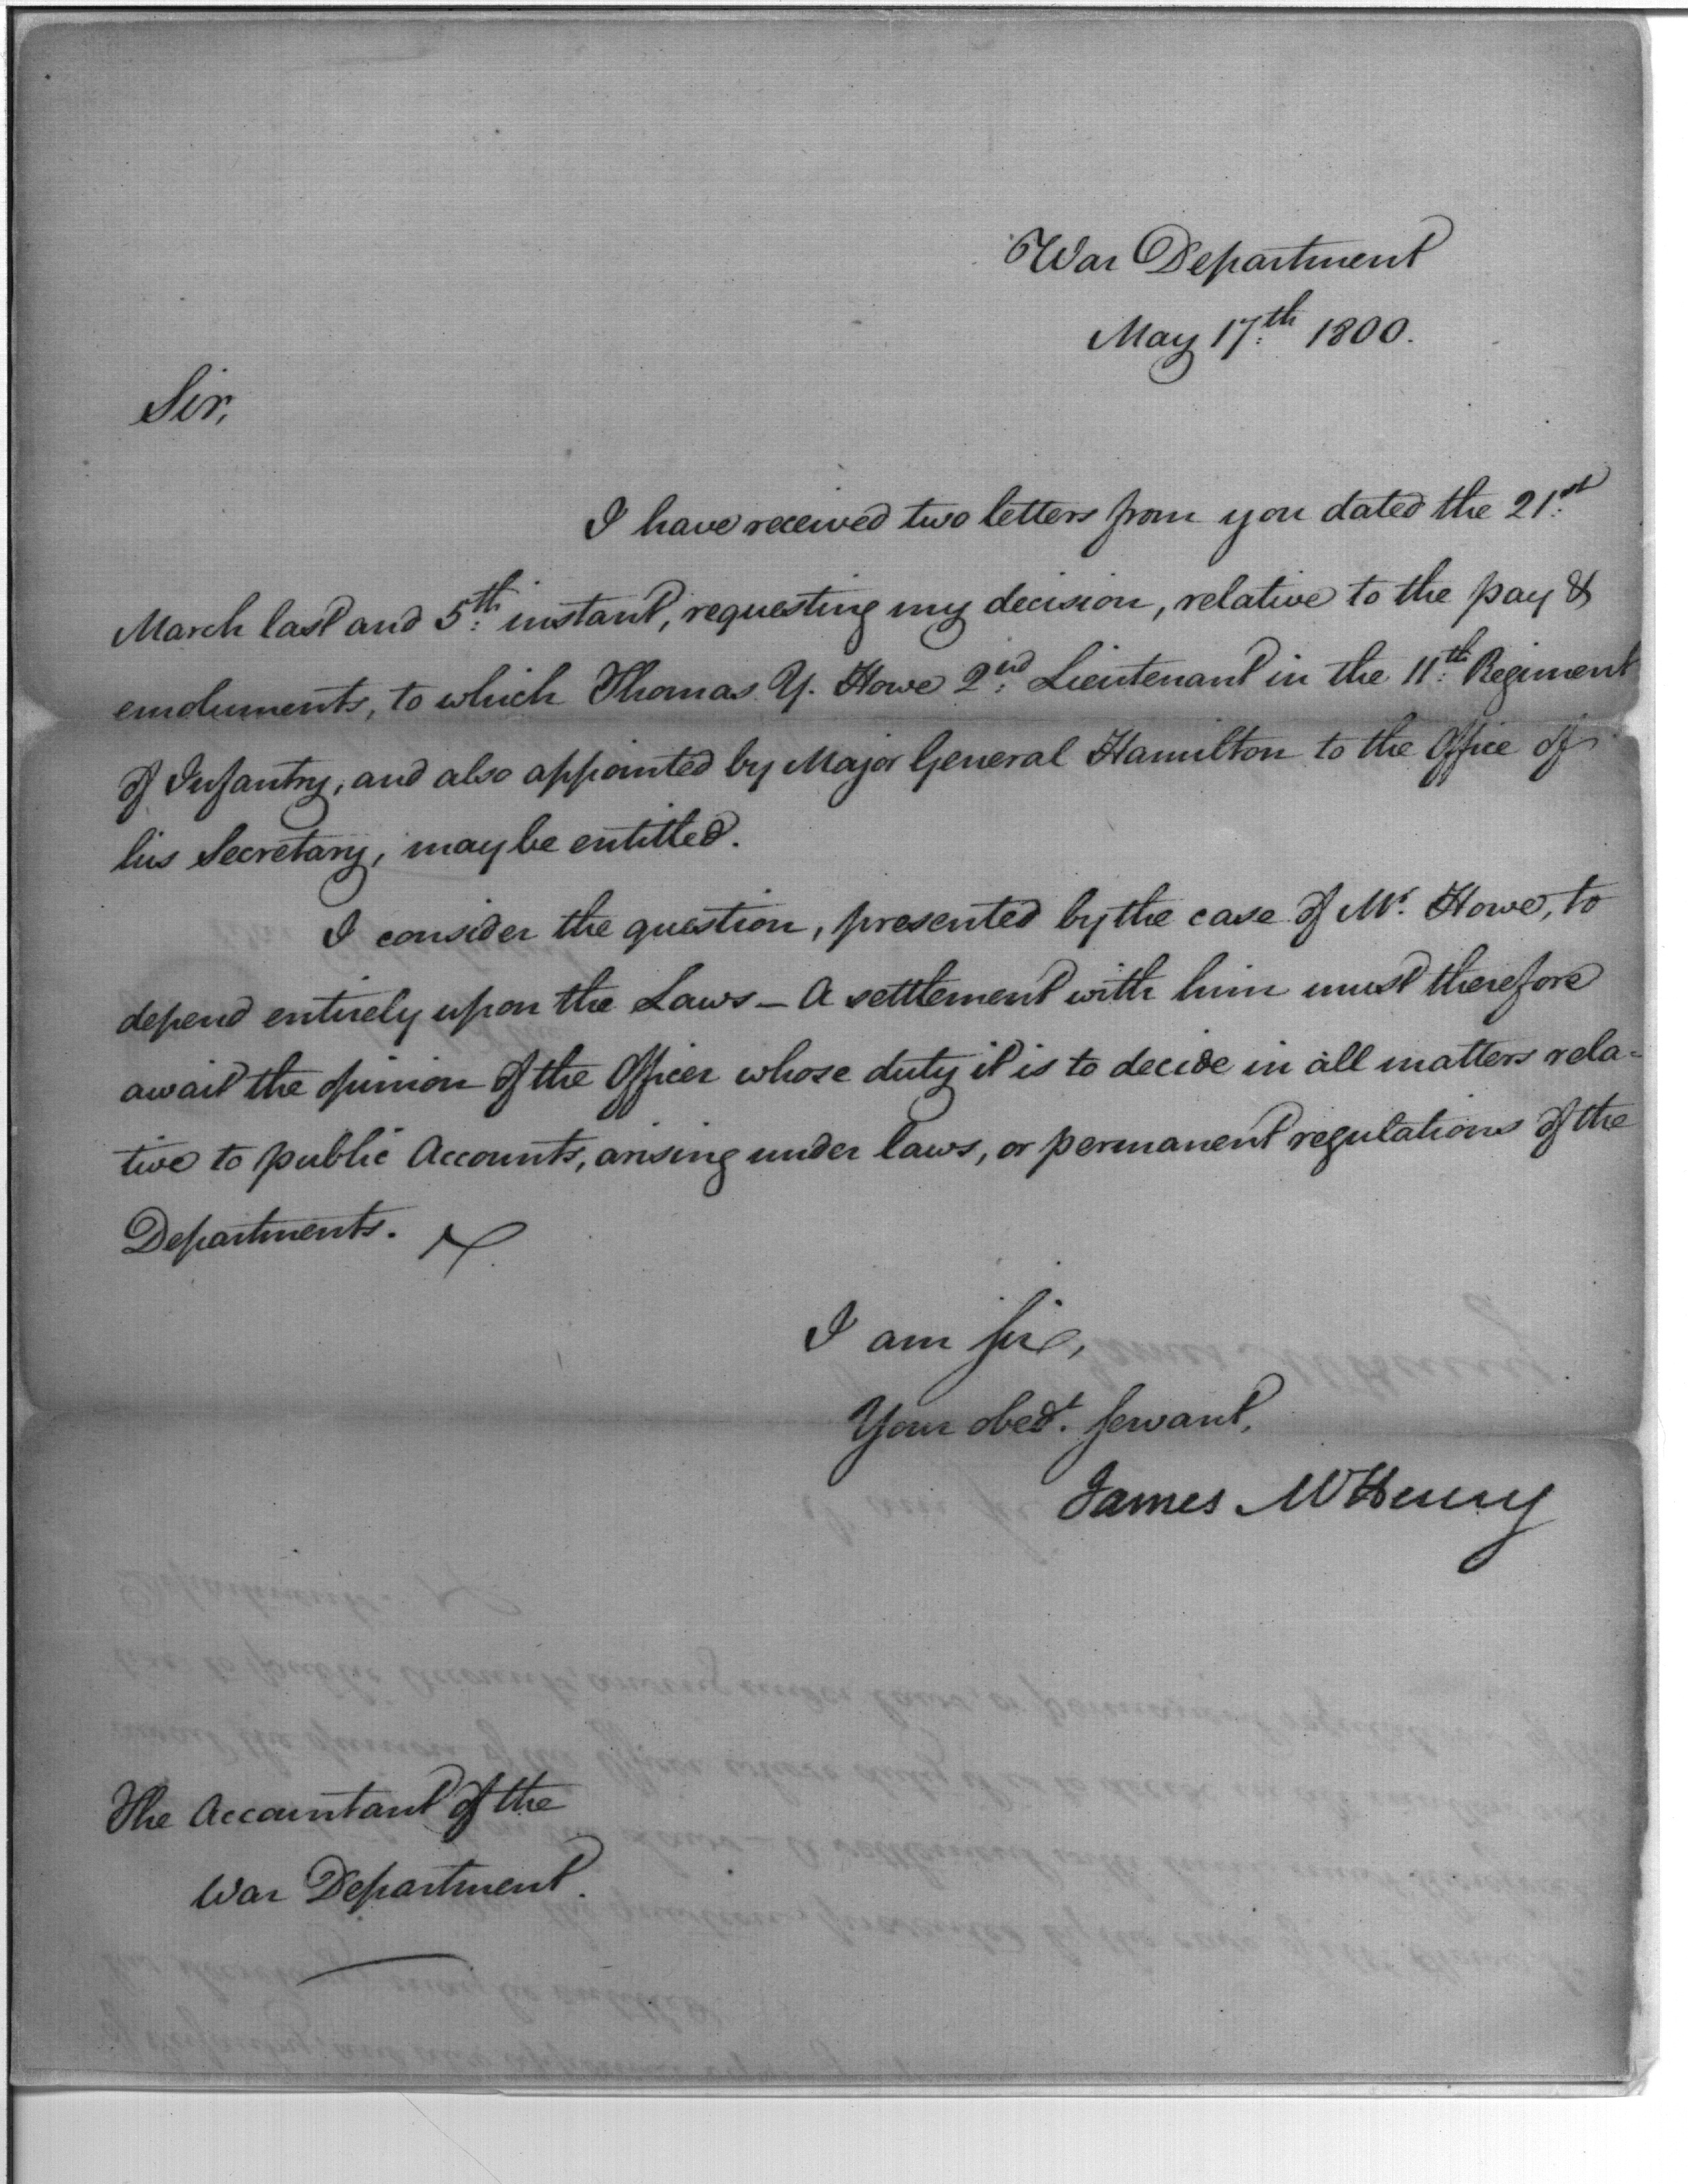 War Department
May 17th 1800.
Sir,
I have received two letters from you dated the 21st
March last and 5th instant, requesting my decision, relative to the pay &
emoluments, to which Thomas Y. Howe 2nd Lieutenant in the 11th Regiment
of Infantry, and also appointed by Major General Hamilton to the Office of
his Secretary, may be entitled.
I consider the question, presented by the case of Mr. Howe, to
depend entirely upon the Laws — A settlement with him must therefore
await the opinion of the Officer whose duty it is to decide in all matters rela-
tive to public Accounts, arising under laws, or permanent regulations of the
Departments.
I am Sir,
Your obedt. Servant,
James McHenry
The Accountant of the
War Department.